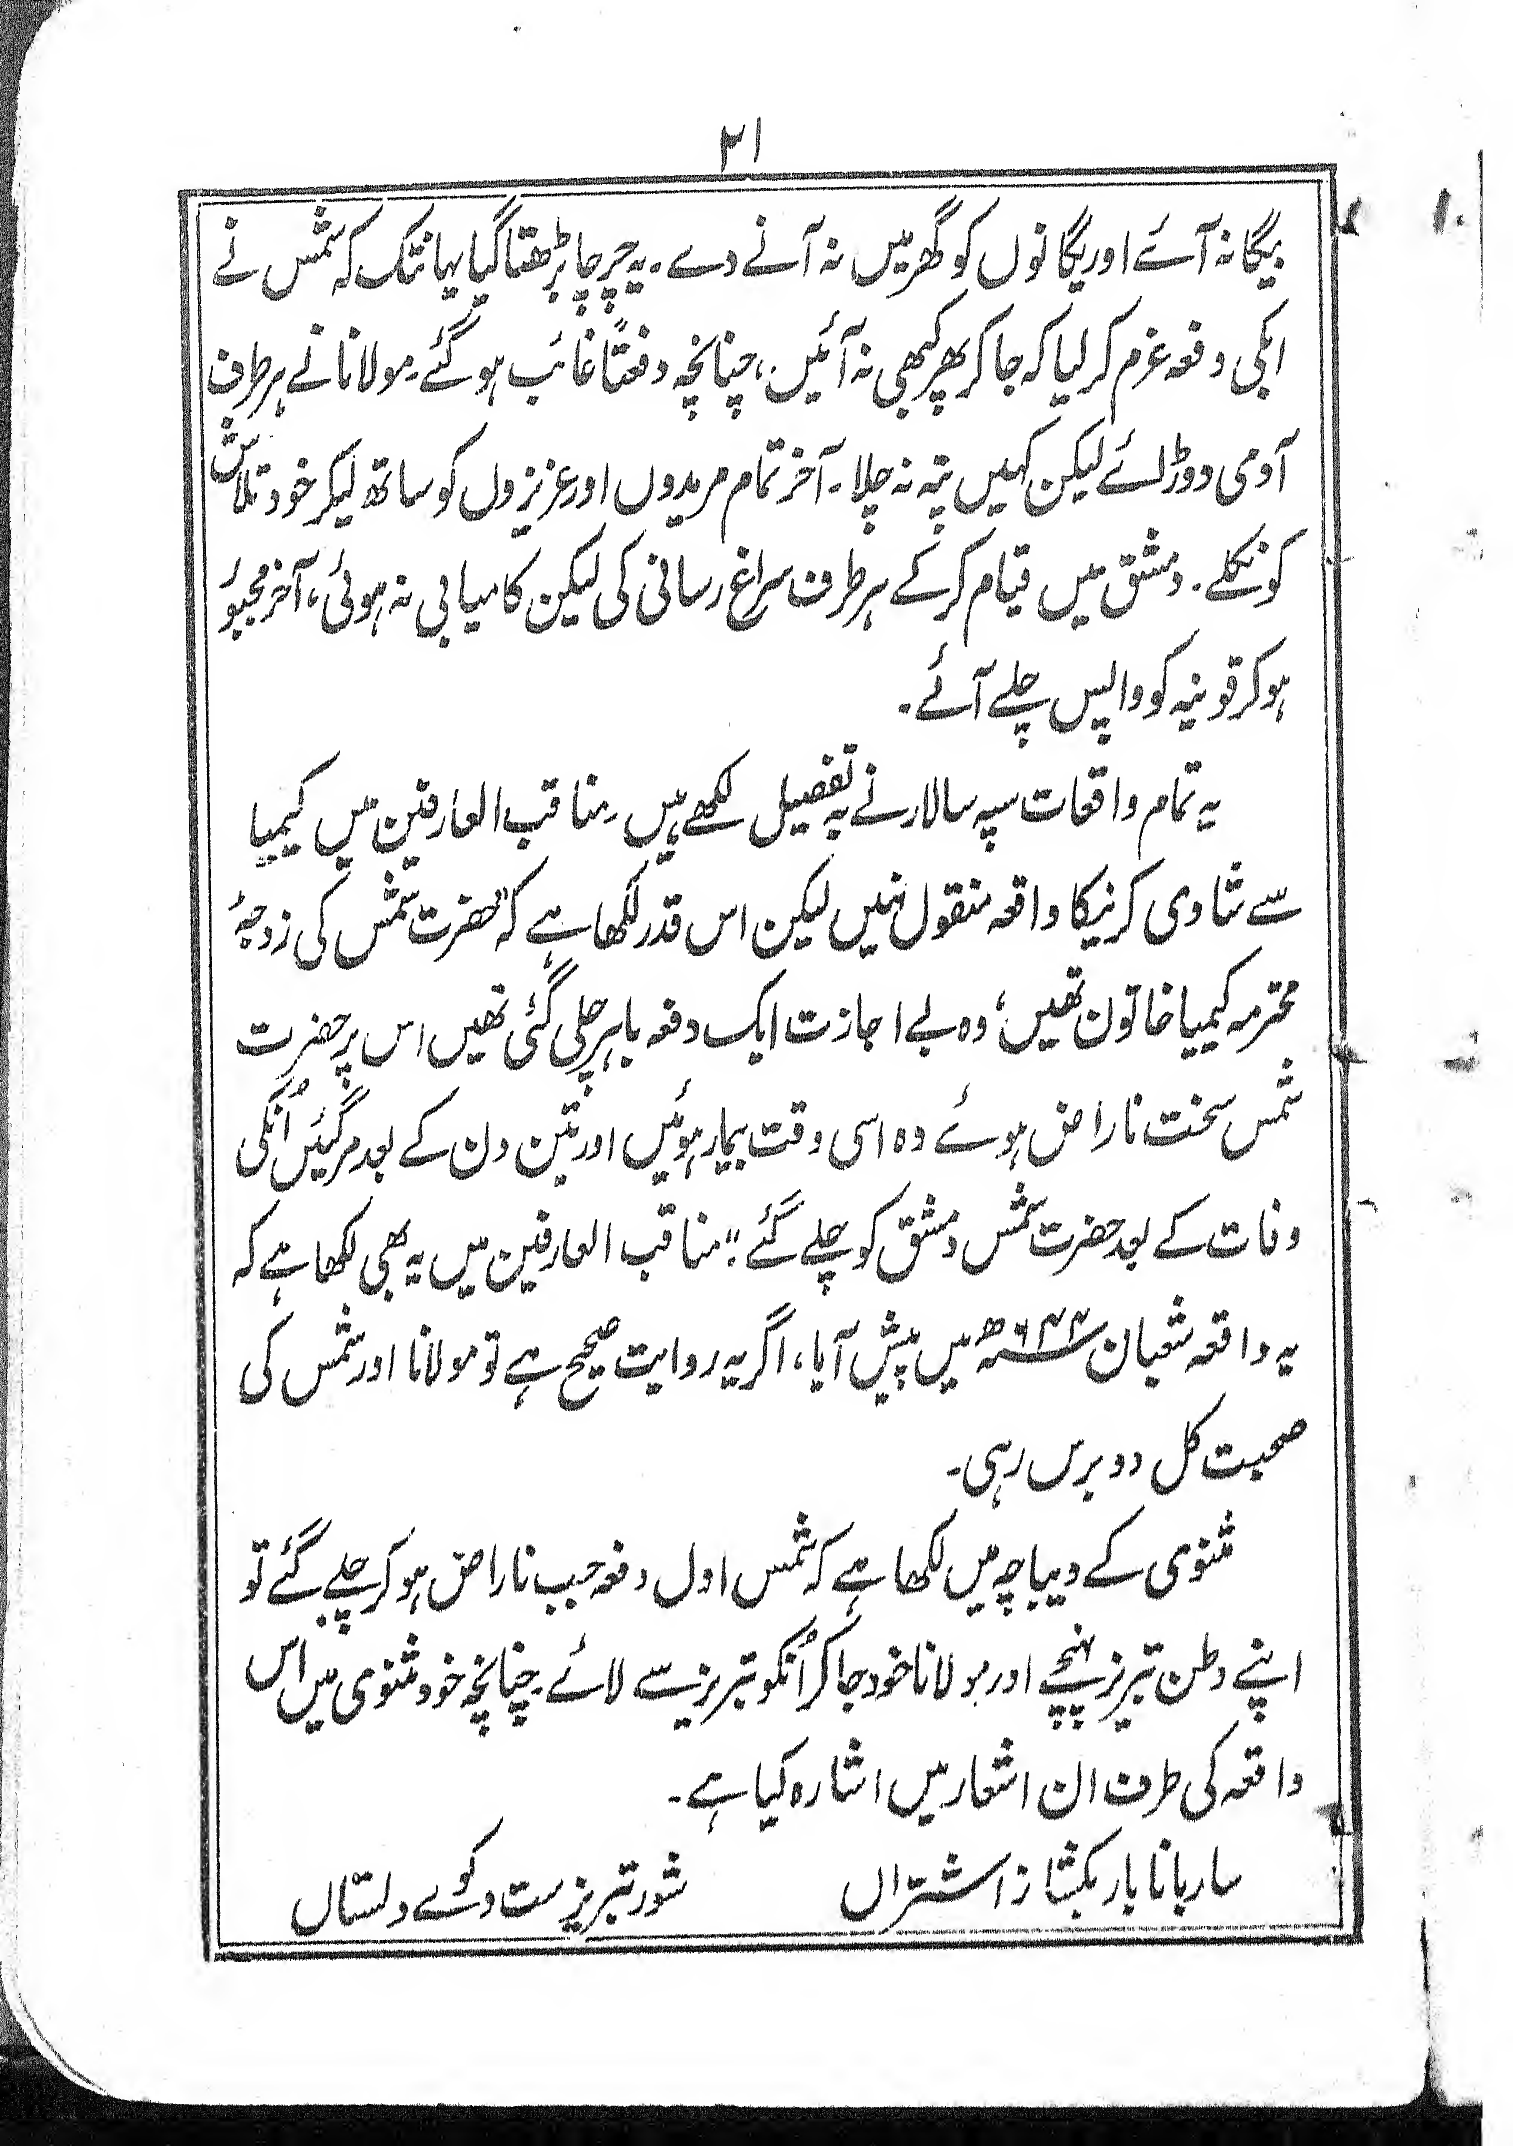 ۲۱
بیگانہ آئے اور یگانوں کو گھر میں نہ آنے دے۔ یہ چرچا بڑھتا گیا یہانتک کہ شمس نے
ابکی دفعہ عزم کر لیا کہ جا کر پھر کبھی نہ آئیں، چنانچہ دفعتًا غائب ہو گئے۔ مولانا نے ہر طرف
آدمی دوڑائے لیکن کہیں پتہ نہ چلا۔ آخر تمام مریدوں اور عزیزوں کو ساتھ لیکر خود تلاش
کو نکلے۔ دمشق میں قیام کر کے ہر طرف سراغ رسانی کی لیکن کامیابی نہ ہوئی، آخر مجبور
ہو کر قونیہ کو واپس چلے آئے۔
یہ تمام واقعات سپہ سالار نے بہ تفصیل لکھے ہیں۔ مناقب العارفین میں کیمیا
سے شادی کرنیکا واقعہ منقول نہیں لیکن اس قدر لکھا ہے کہ "حضرت شمس کی زوجۂ
محترمہ کیمیا خاتون تھیں، وہ بے اجازت ایک دفعہ باہر چلی گئی تھیں اس پر حضرت
شمس سخت ناراض ہوئے وہ اسی وقت بیمار ہوئیں اور تین دن کے بعد مر گئیں اُنکی
وفات کے بعد حضرت شمس دمشق کو چلے گئے"۔ مناقب العارفین میں یہ بھی لکھا ہے کہ
یہ واقعہ شعبان ۶۴۴ھ میں پیش آیا، اگر یہ روایت صحیح ہے تو مولانا اور شمس کی
صحبت کل دو برس رہی۔
مثنوی کے دیباچہ میں لکھا ہے کہ شمس اول دفعہ جب ناراض ہو کر چلے گئے تو
اپنے وطن تبریز پہنچے اور مولانا خود جا کر اُنکو تبریز سے لائے۔ چنانچہ خود مثنوی میں اس
واقعہ کی طرف ان اشعار میں اشارہ کیا ہے۔
ساربانا بار بکشا ز اشتراں شور تبریز ست و کوے دلستاں